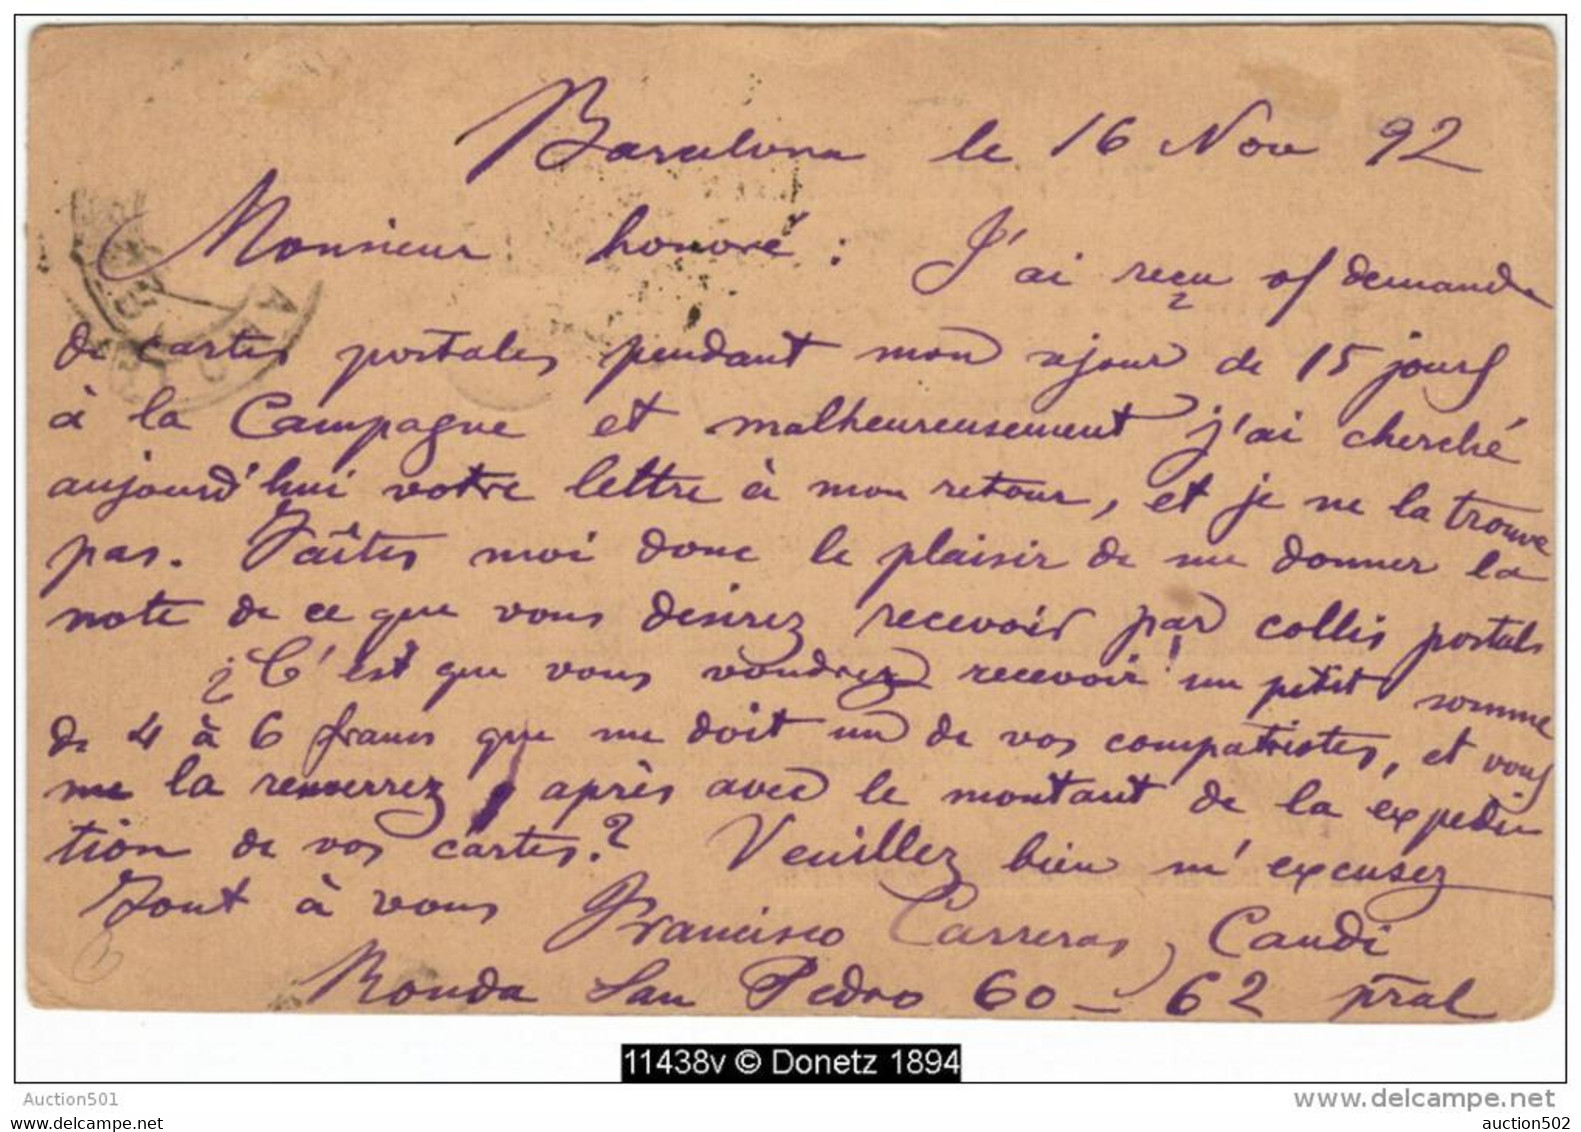 Barcelona le 16 Nov 92
Monsieur honoré : J'ai reçu of demande
de cartes postales pendant mon sejour de 15 jours
à la Campagne et malheureusement j'ai cherché
aujourd'hui votre lettre à mon retour, et je ne la trouve
pas. Faîtes moi donc le plaisir de me donner la
note de ce que vous desirez recevoir par collis postals
¿C'est que vous voudrez recevoir un petit somme
de 4 à 6 francs que me doit un de vos compatriotes, et vous
me la renverrez après avec le montant de la expedi
tion de vos cartes? Veuillez bien m'excusez
Tout à vous Francisco Carreras, Candi
Ronda San Pedro 60-62 pral
11438v © Donetz 1894
Auction501
www.delcampe.net
auction502